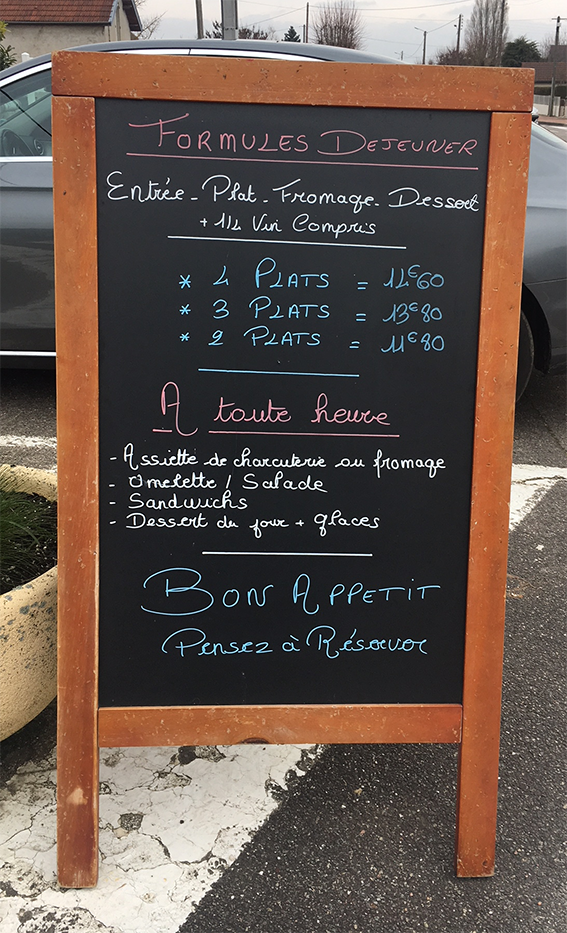 FORMULES DEJEUNER
Entrée - Plat - Fromage - Dessert
+ 1/4 Vin Compris
* 4 PLATS = 14€60
* 3 PLATS = 13€80
* 2 PLATS = 11€80
A toute heure
- Assiette de charcuterie ou fromage
- Omelette / Salade
- Sandwichs
- Dessert du jour + glaces
BON APPETIT
Pensez à Réserver